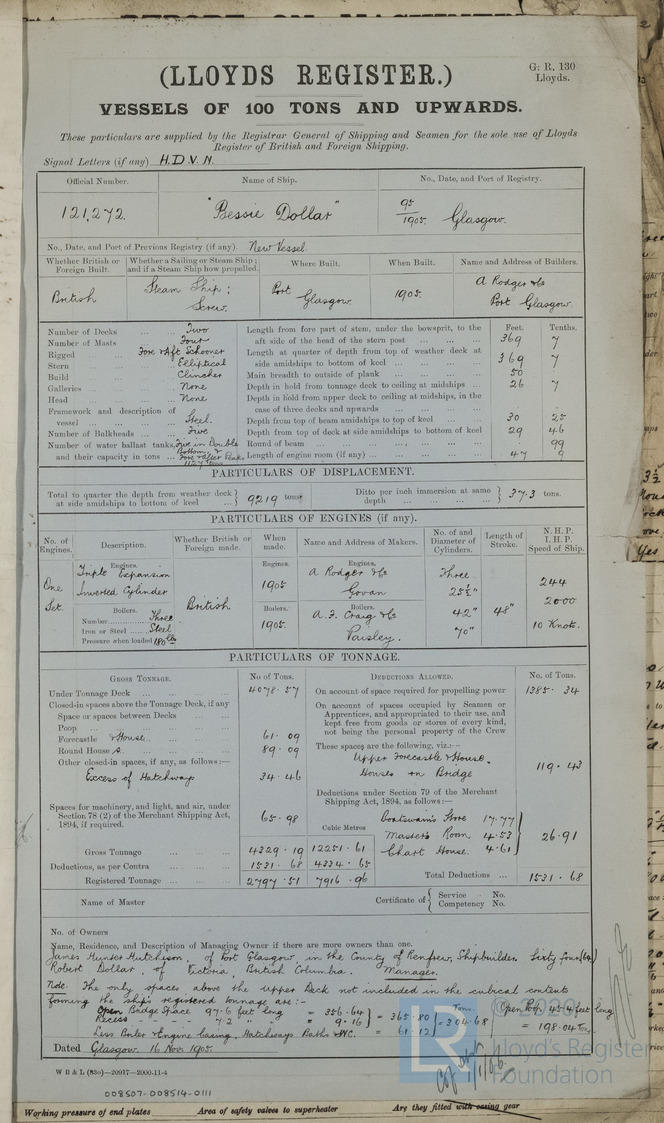 (LLOYDS REGISTER.)
G: R, 130
Lloyds.
VESSELS OF 100 TONS AND UPWARDS.
These particulars are supplied by the Registrar General of Shipping and Seamen for the sole use of Lloyds
Register of British and Foreign Shipping.
Signal Letters (if any) H.D.V.N.
Official Number. Name of Ship. No., Date, and Port of Registry.
121,272. "Bessie Dollar" 95/1905. Glasgow.
No., Date, and Port of Previous Registry (if any). New Vessel
Whether British or Foreign Built. Whether a Sailing or Steam Ship; and if a Steam Ship how propelled. Where Built. When Built. Name and Address of Builders.
British Steam Ship; Screw. Port Glasgow. 1905. A Rodger & Co Port Glasgow.
Number of Decks ... ... Two
Number of Masts ... Four
Rigged ... Fore & Aft Schooner
Stern ... Elliptical
Build ... Clincher
Galleries ... None
Head ... None
Framework and description of
vessel ... ... Steel.
Number of Bulkheads ... Five
Number of water ballast tanks, Five in Double
and their capacity in tons ... Bottom, & Fore & After Peaks
1127 tons
Feet. Tenths.
Length from fore part of stem, under the bowsprit, to the
aft side of the head of the stern post ... ... 369 7
Length at quarter of depth from top of weather deck at
side amidships to bottom of keel ... ... 369 7
Main breadth to outside of plank ... ... 50 .
Depth in hold from tonnage deck to ceiling at midships ... 26 7
Depth in hold from upper deck to ceiling at midships, in the
case of three decks and upwards ... ... . .
Depth from top of beam amidships to top of keel ... 30 25
Depth from top of deck at side amidships to bottom of keel 29 46
Round of beam ... ... 99
Length of engine room (if any) ... ... 47 9
PARTICULARS OF DISPLACEMENT.
Total to quarter the depth from weather deck at side amidships to bottom of keel } 9219 tons
Ditto per inch immersion at same depth ... } 37.3 tons.
PARTICULARS OF ENGINES (if any).
No. of Engines. Description. Whether British or Foreign made. When made. Name and Address of Makers. No. of and Diameter of Cylinders. Length of Stroke. N. H. P. I. H. P. Speed of Ship.
Engines. Engines. Engines.
One Set. Triple Expansion Inverted Cylinder British 1905 A Rodger & Co Govan Three 25½" 42" 70" 48" 244 2000 10 Knots.
Boilers. Boilers. Boilers.
Number Three
Iron or Steel Steel
Pressure when loaded 180 lbs
1905. A. F. Craig & Co Paisley.
PARTICULARS OF TONNAGE.
GROSS TONNAGE. No of Tons.
Under Tonnage Deck ... ... 4078.57
Closed-in spaces above the Tonnage Deck, if any
Space or spaces between Decks ...
Poop ... ...
Forecastle & House ... 61.09
Round House s. ... 89.09
Other closed-in spaces, if any, as follows:—
Excess of Hatchways 34.46
Spaces for machinery, and light, and air, under
Section 78 (2) of the Merchant Shipping Act,
1894, if required. 65.98
Cubic Metres
Gross Tonnage ... 4329.19 12251.61
Deductions, as per Contra ... 1531.68 4334.65
Registered Tonnage ... 2797.51 7916.96
DEDUCTIONS ALLOWED. No. of Tons.
On account of space required for propelling power 1385.34
On account of spaces occupied by Seamen or
Apprentices, and appropriated to their use, and
kept free from goods or stores of every kind,
not being the personal property of the Crew
These spaces are the following, viz.:—
Upper Forecastle & House.
Houses on Bridge 119.43
Deductions under Section 79 of the Merchant
Shipping Act, 1894, as follows:—
Boatswain's Store 17.77
Master's Room 4.53
Chart House. 4.61
26.91
Total Deductions ... 1531.68
Name of Master Certificate of { Service – No. Competency No.
No. of Owners
Name, Residence, and Description of Managing Owner if there are more owners than one.
James Hunter Hutchison, of Port Glasgow, in the County of Renfrew, Shipbuilder. Sixty four (64)
Robert Dollar, of Victoria, British Columbia. Manager.
Note. The only spaces above the Upper Deck not included in the cubical contents
forming the ship's registered tonnage are:-
Open Bridge Space 97.6 feet long = 356.64
Recess 7.2 " " = 9.16 } = 365.80
Less Boiler & Engine Casing, Hatchways Baths & WC. = 61.12
Tons. = 304.68
Open Poop 45.4 feet long
= 198.04 Tons
Dated Glasgow. 16 Nov 1905.
W B & L (830)—20917—2000-11-4
008507-008514-0111
LR
© 2020
Lloyd's Register
Foundation
Working pressure of end plates Area of safety valves to superheater Are they fitted with easing gear